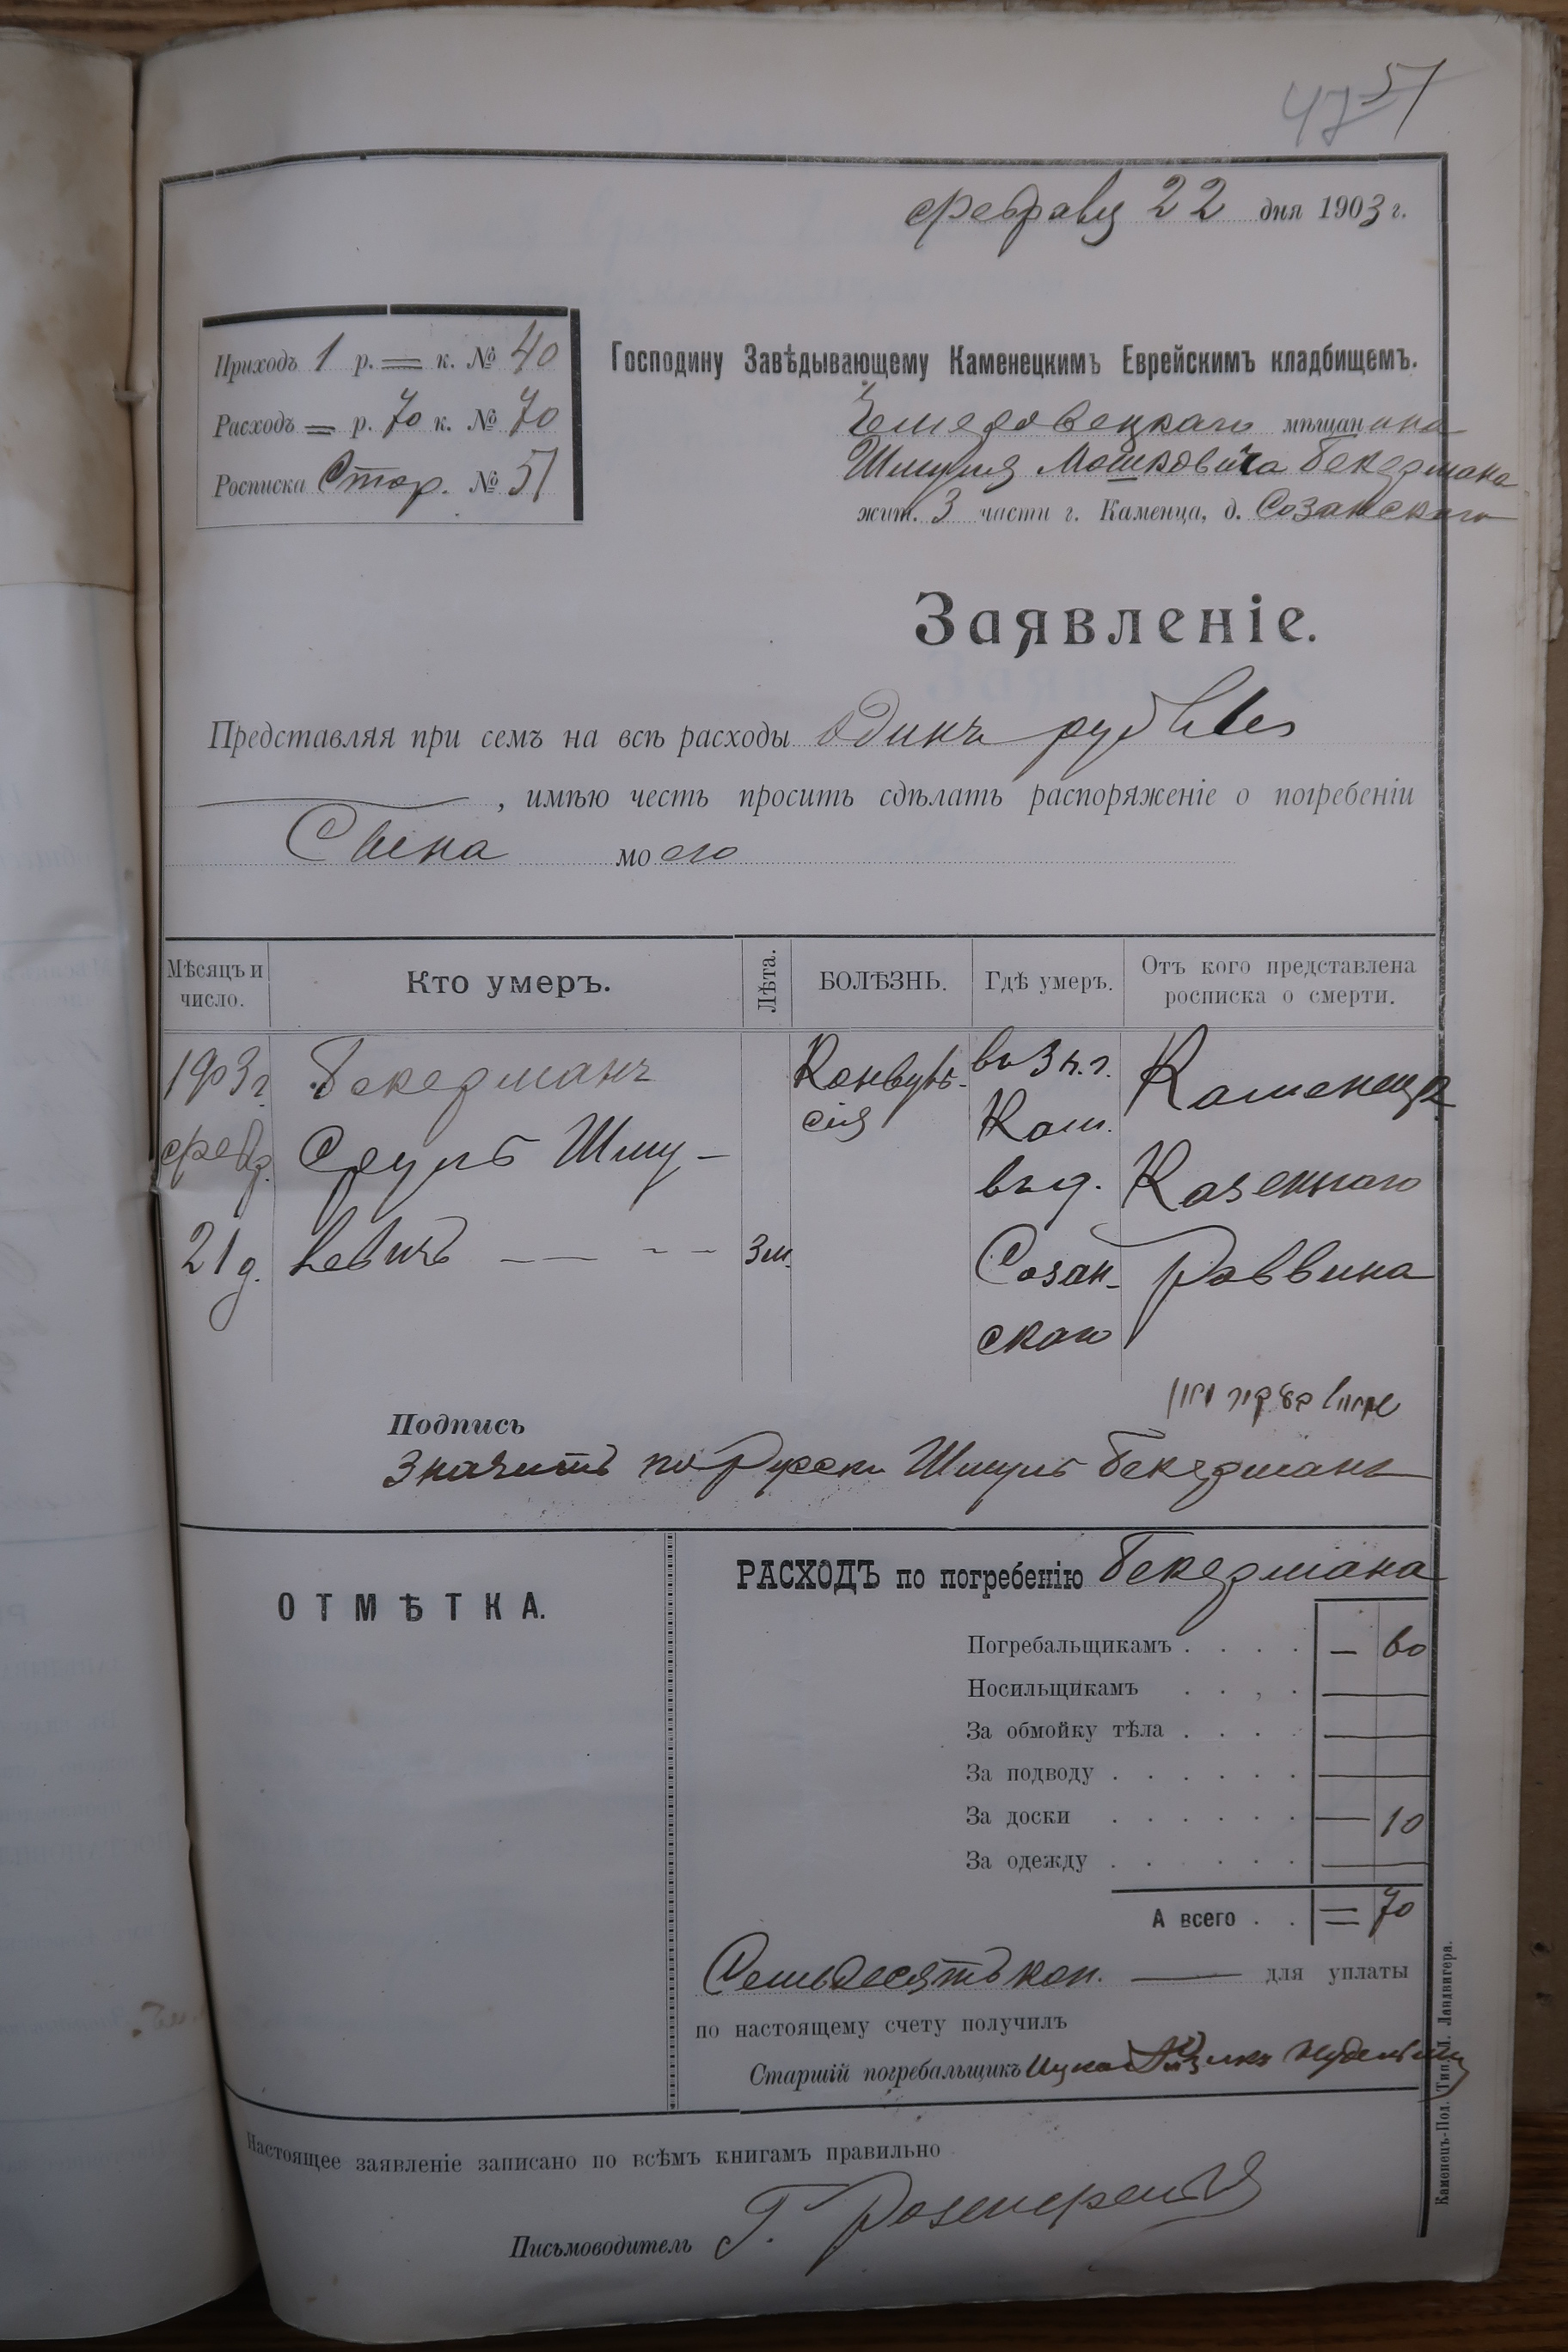 47 51
февраля 22 дня 1903 г.
Приходъ 1 р. = к. № 40
Расходъ = р. 70 к. № 70
Росписка Стор. № 51
Господину Завѣдывающему Каменецкимъ Еврейскимъ кладбищемъ.
мѣщанина
Шмуля Мошковича Бекермана
жит. 3 части г. Каменца, д. Созанскаго
Заявленіе.
Представляя при семъ на всѣ расходы одинъ рубль
, имѣю честь просить сдѣлать распоряженіе о погребеніи
Сына моего
Мѣсяцъ и число. Кто умеръ. Лѣта. БОЛѢЗНЬ. Гдѣ умеръ. Отъ кого представлена росписка о смерти.
1903 г. Бекерманъ Конвуль- въ 3 ч. г. Каменецк.
февр. Сруль Шму- сія Кам. Казеннаго
21 д. левичъ — — - - 3 м. въ д. Раввина
Созан-
скаго
Подпись
Значитъ по Русски Шмуль Бекерманъ
ОТМѢТКА.
РАСХОДЪ по погребенію Бекермана
Погребальщикамъ . . . . — 60
Носильщикамъ . . , . —
За обмойку тѣла . . . . —
За подводу . . . . . . —
За доски . . . . . . — 10
За одежду . . . . . . —
А всего . . = 70
Семьдесятъ коп. — для уплаты
по настоящему счету получилъ
Старшій погребальщикъ Ицко
Настоящее заявленіе записано по всѣмъ книгамъ правильно
Письмоводитель Г.
Каменецъ-Под. Тип. Л. Ландвигера.